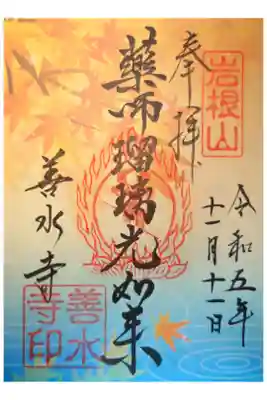 奉拝
岩根山
令和五年
十一月十一日
薬師瑠璃光如来
善水寺
善水
寺印